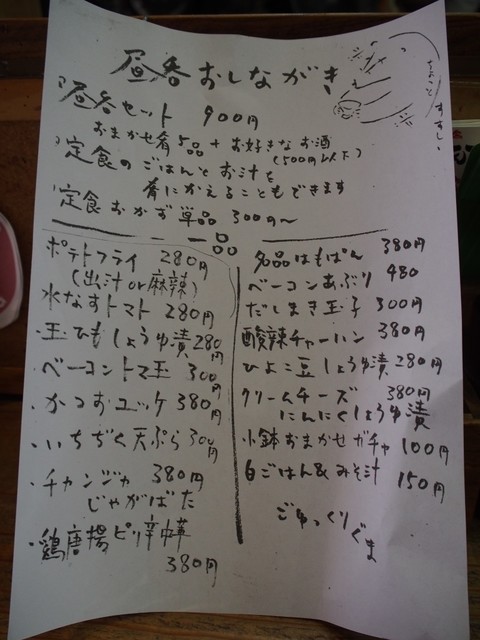 昼呑おしながき
ちょこっと
すすしい
・昼呑セット 900円
おまかせ肴5品+お好きなお酒
(500円以下)
・定食のごはんとお汁を
肴にかえることもできます
・定食おかず単品 300円〜
一品
ポテトフライ 280円
(出汁or麻辣)
水なすトマト 280円
・玉ひもしょうゆ漬 280円
・ベーコントマ玉 300円
・かつおユッケ 380円
・いちぢく天ぷら 300円
・チャンジャ 380円
じゃがばた
・鶏唐揚ピリ辛中華
380円
名品はもぱん 380円
ベーコンあぶり 480
だしまき玉子 300円
酸辣チャーハン 380円
ひよこ豆しょうゆ漬 280円
クリームチーズ 380円
にんにくしょうゆ漬
小鉢おまかせガチャ 100円
白ごはん&みそ汁 150円
ごゆっくりぐま